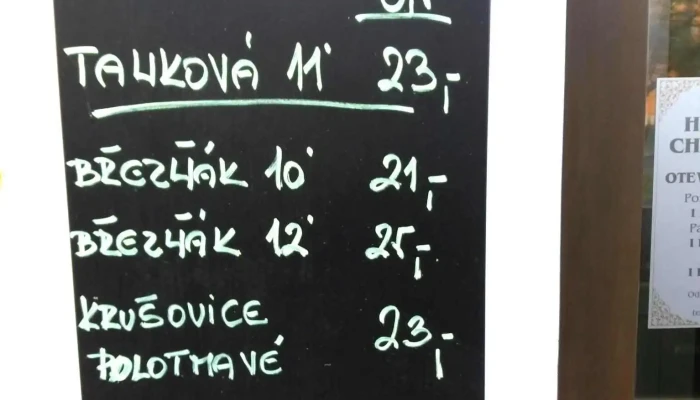 TANKOVÁ 11° 23,-
BŘEZŇÁK 10° 21,-
BŘEZŇÁK 12° 25,-
KRUŠOVICE
POLOTMAVÉ 23,-
H
CH
OTEV
Po
Pá